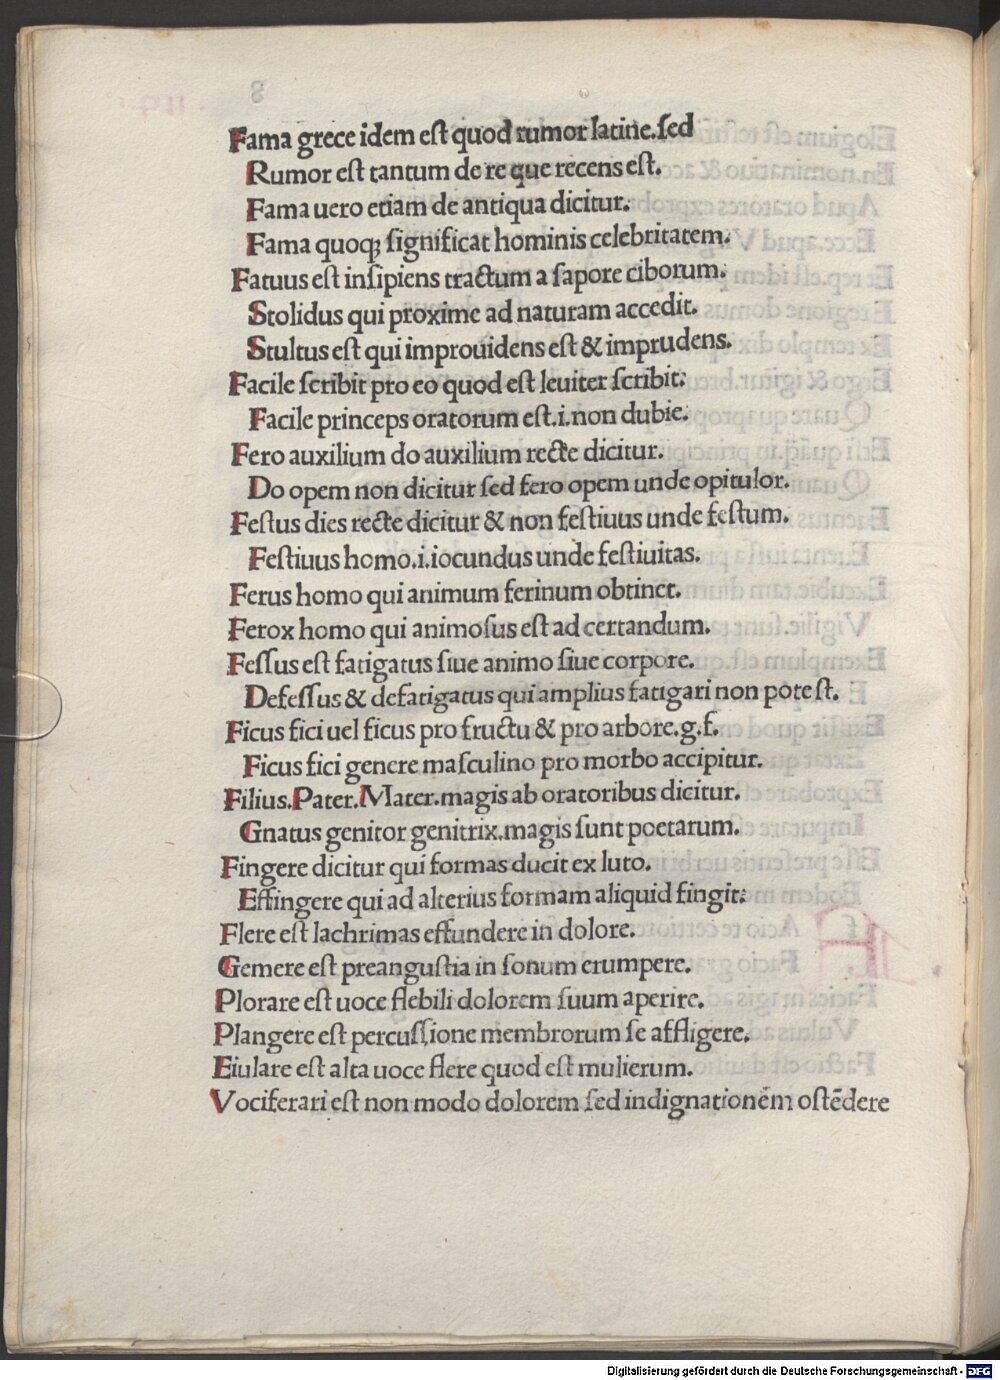 Fama grece idem est quod rumor latine.sed
Rumor est tantum de re que recens est.
Fama uero etiam de antiqua dicitur.
Fama quoqꝫ significat hominis celebritatem.
Fatuus est insipiens tractum a sapore ciborum.
Stolidus qui proxime ad naturam accedit.
Stultus est qui improuidens est & imprudens.
Facile scribit pro eo quod est leuiter scribit:
Facile princeps oratorum est.i.non dubie.
Fero auxilium do auxilium recte dicitur.
Do opem non dicitur sed fero opem unde opitulor.
Festus dies recte dicitur & non festiuus unde festum.
Festiuus homo.i.iocundus unde festiuitas.
Ferus homo qui animum ferinum obtinet.
Ferox homo qui animosus est ad certandum.
Fessus est fatigatus siue animo siue corpore.
Defessus & defatigatus qui amplius fatigari non potest.
Ficus fici uel ficus pro fructu & pro arbore.g.f.
Ficus fici genere masculino pro morbo accipitur.
Filius.Pater.Mater.magis ab oratoribus dicitur.
Gnatus genitor genitrix.magis sunt poetarum.
Fingere dicitur qui formas ducit ex luto.
Effingere qui ad alterius formam aliquid fingit:
Flere est lachrimas effundere in dolore.
Gemere est preangustia in sonum erumpere.
Plorare est uoce flebili dolorem suum aperire.
Plangere est percussione membrorum se affligere.
Eiulare est alta uoce flere quod est mulierum.
Vociferari est non modo dolorem sed indignationem ostēdere
Digitalisierung gefördert durch die Deutsche Forschungsgemeinschaft - DFG